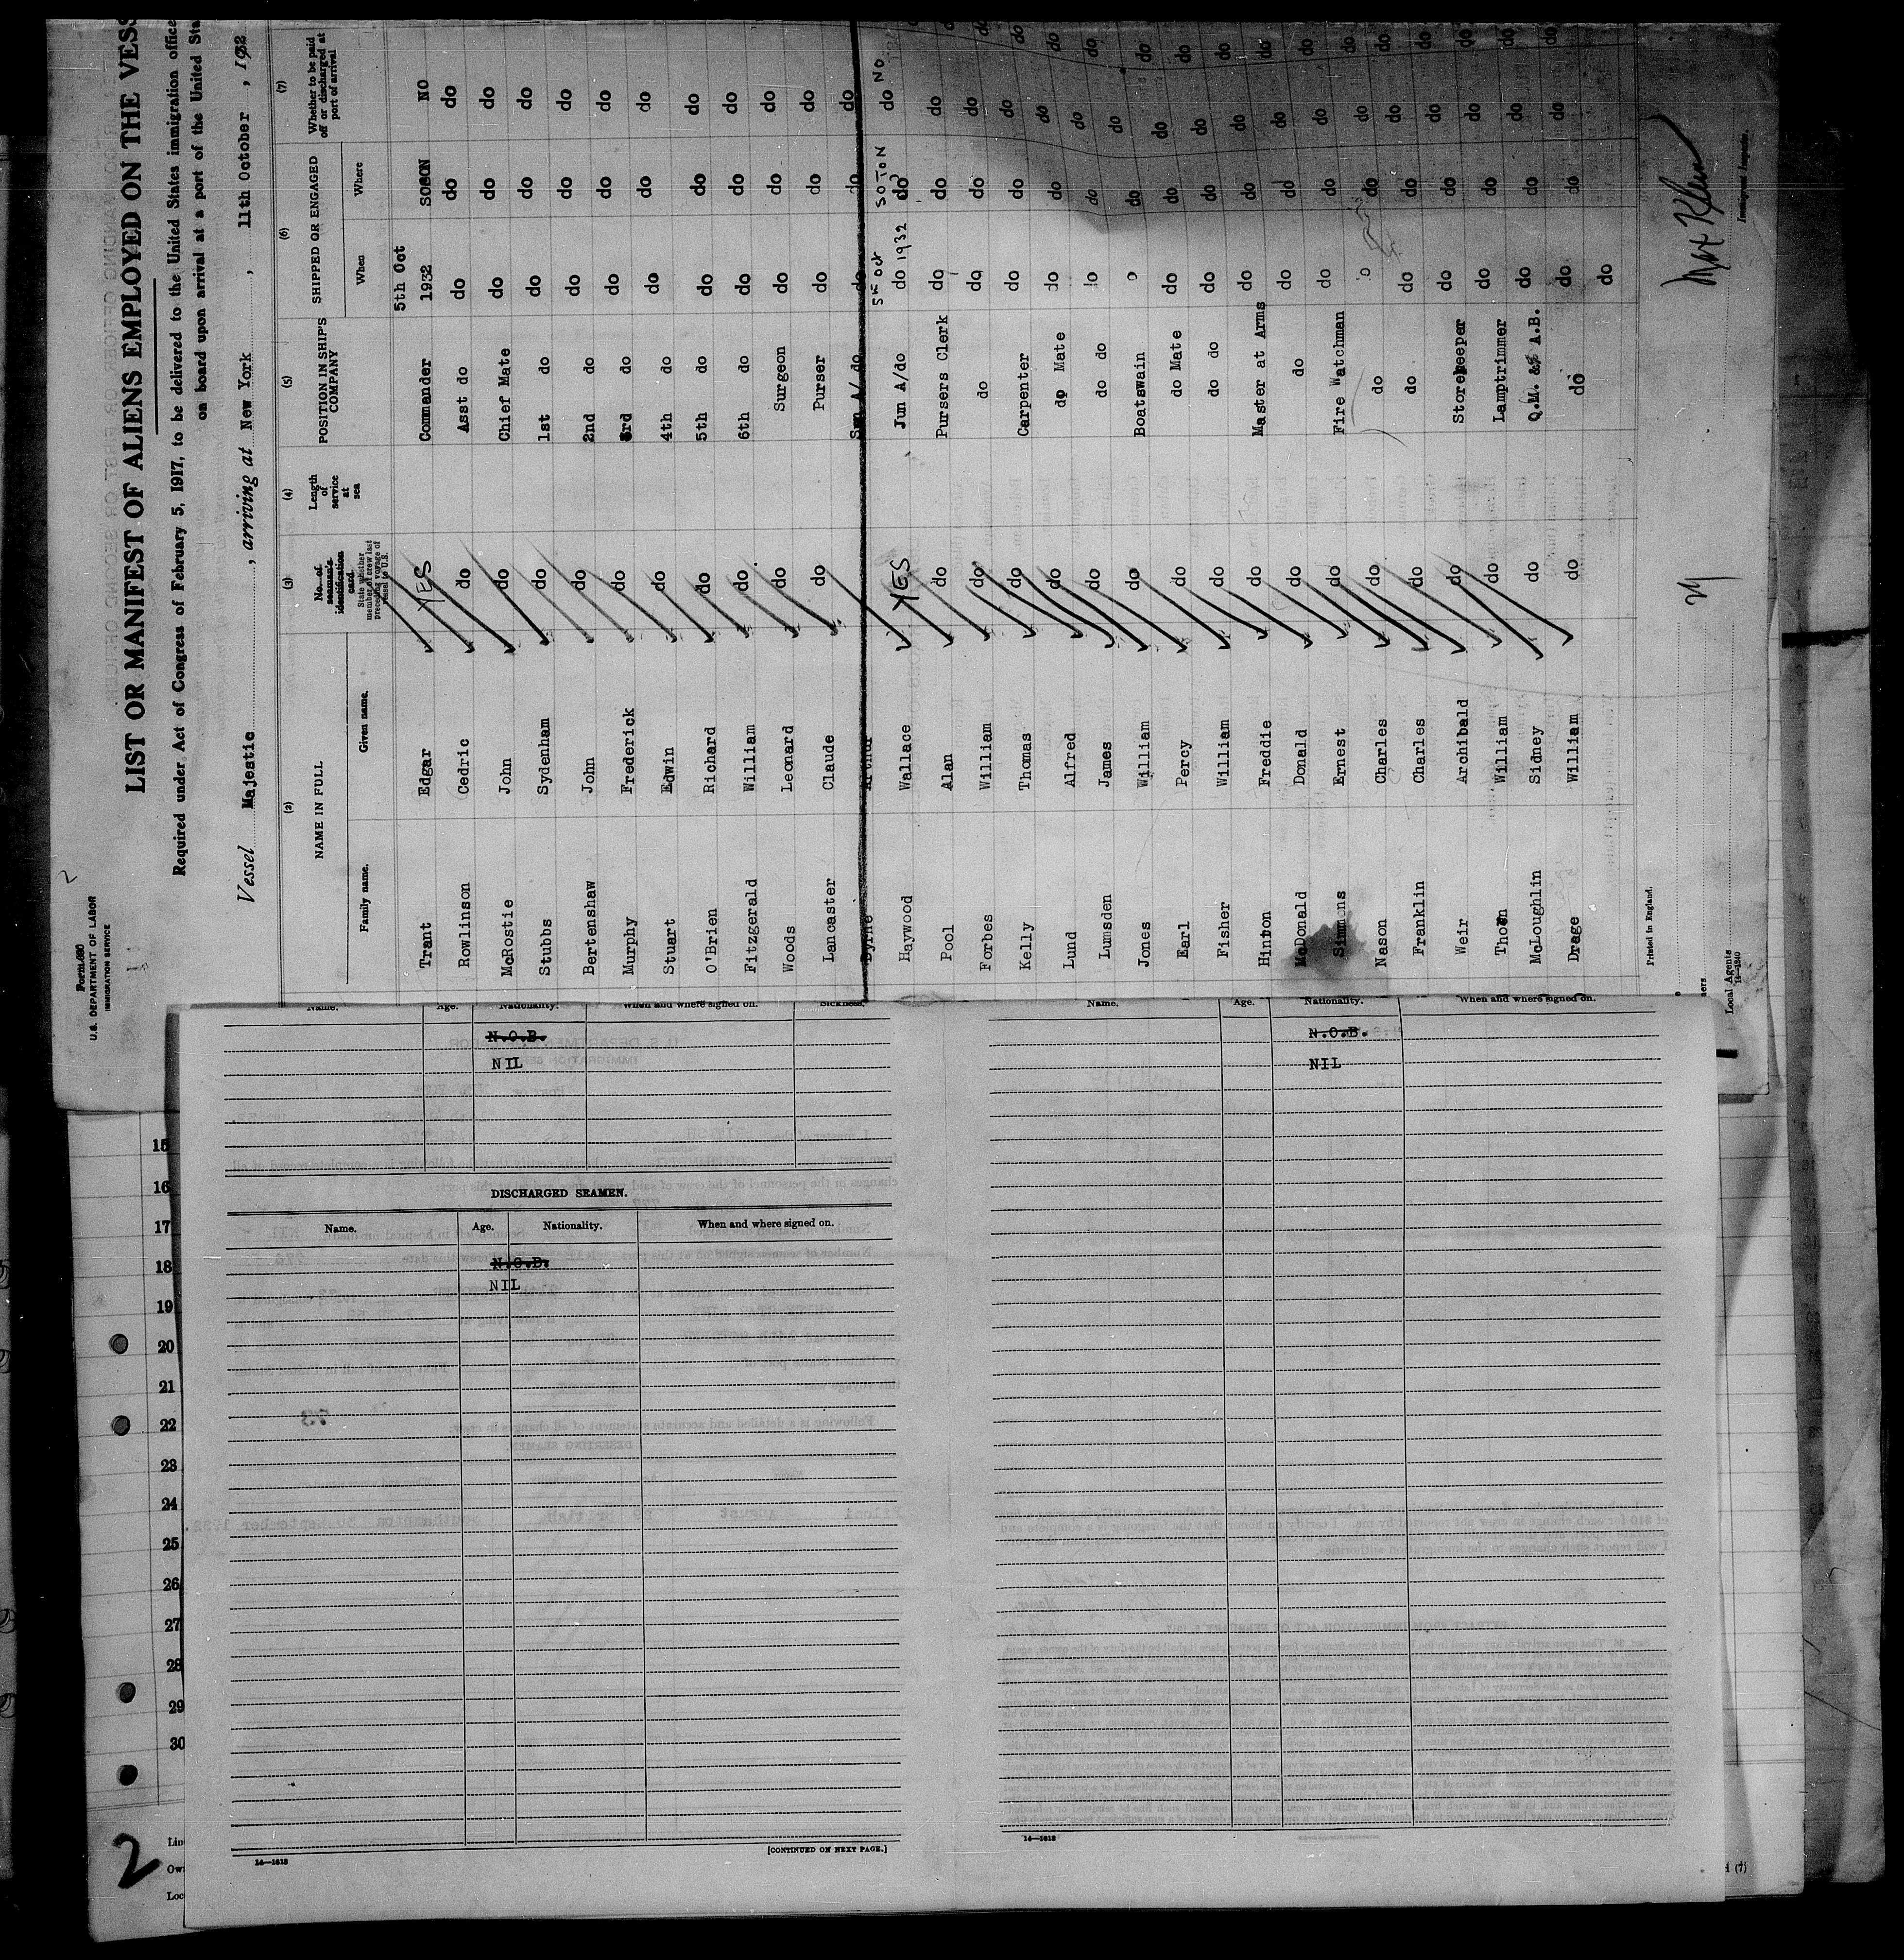 Form 680
U.S. DEPARTMENT OF LABOR
IMMIGRATION SERVICE
2
LIST OR MANIFEST OF ALIENS EMPLOYED ON THE VESS
Required under Act of Congress of February 5, 1917, to be delivered to the United States immigration office
on board upon arrival at a port of the United Sta
Vessel Majestic , arriving at New York , 11th October , 1932
(2) (3) (4) (5) (6) (7)
NAME IN FULL No. of seaman's identification card. State whether member of crew last preceding voyage of vessel to U.S. Length of service at sea POSITION IN SHIP'S COMPANY SHIPPED OR ENGAGED Whether to be paid off or discharged at port of arrival
Family name. Given name. When Where
5th Oct
Trant Edgar YES Commander 1932 SOTON NO
Rowlinson Cedric do Asst do do do do
McRostie John do Chief Mate do do do
Stubbs Sydenham do 1st do do do do
Bertenshaw John do 2nd do do do do
Murphy Frederick do 3rd do do do do
Stuart Edwin do 4th do do do do
O'Brien Richard do 5th do do do do
Fitzgerald William do 6th do do do do
Woods Leonard do Surgeon do do do
Lancaster Claude do Purser do do do
Byrne Arthur A/ do do do do
5th Oct 1932 SOTON NO
Haywood Wallace YES Jun A/do do do do
Pool Alan do Pursers Clerk do do do
Forbes William do do do do do
Kelly Thomas do Carpenter do do do
Lund Alfred do do Mate do do do
Lumsden James do do do do do do
Jones William do Boatswain do do
Earl Percy do do Mate do do do
Fisher William do do do do do do
Hinton Freddie do Master at Arms do do do
McDonald Donald do do do do do
Simmons Ernest do Fire Watchman do do do
Nason Charles do do do do
Franklin Charles do do do do do
Weir Archibald do Storekeeper do do do
Thom William do Lamptrimmer do do do
McLoughlin Sidney do Q.M. & A.B. do do do
Drage William do do do do do
do
Max Klein
Immigrant Inspector.
Printed in England.
Local Agents
14—1240
Name. Age. Nationality. When and where signed on. Sickness.
N.O.B.
NIL
DISCHARGED SEAMEN.
Name. Age. Nationality. When and where signed on.
N.O.B.
NIL
[CONTINUED ON NEXT PAGE.]
14—1618
Name. Age. Nationality. When and where signed on.
N.O.B.
NIL
14—1618
15
16
17
18
19
20
21
22
23
24
25
26
27
28
29
30
2
Lin
Ow
Loc